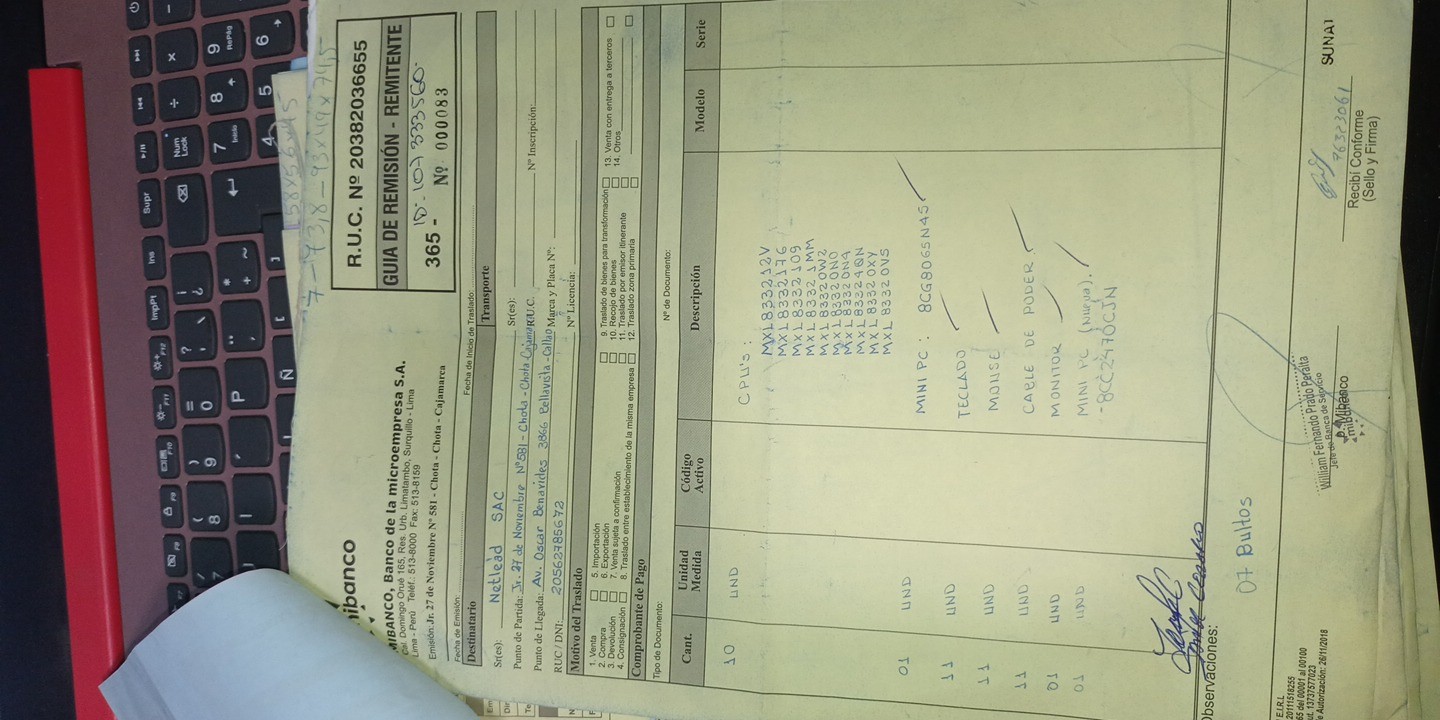 7-43,8-43x49x74,5
58x56x45
mibanco
MIBANCO, Banco de la microempresa S.A.
Cal. Domingo Orué 165, Res. Urb. Limatambo, Surquillo - Lima
Lima - Perú Teléf.: 513-8000 Fax: 513-8159
Emisión: Jr. 27 de Noviembre N° 581 - Chota - Cajamarca
R.U.C. Nº 20382036655
GUIA DE REMISIÓN - REMITENTE
ID-107333560
365 - Nº 000083
Fecha de Emisión: Fecha de Inicio de Traslado:
Destinatario
Transporte
Sr(es): Netlead SAC
Sr(es):
Punto de Partida: Jr. 27 de Noviembre Nº581 - Chota - Chota - Cajamarca
R.U.C. Nº Inscripción:
Punto de Llegada: Av. Oscar Benavides 3866 Bellavista - Callao
Marca y Placa Nº:
RUC / DNI: 20562785672
Nº Licencia:
Motivo del Traslado
1. Venta
2. Compra
3. Devolución
4. Consignación
5. Importación
6. Exportación
7. Venta sujeta a confirmación
8. Traslado entre establecimiento de la misma empresa
9. Traslado de bienes para transformación
10. Recojo de bienes
11. Traslado por emisor itinerante
12. Traslado zona primaria
13. Venta con entrega a terceros
14. Otros
Comprobante de Pago
Tipo de Documento: Nº de Documento:
Cant. Unidad Medida Código Activo Descripción Modelo Serie
10 UND CPU's :
MXL833212V
MXL8332176
MXL8332109
MXL83321MM
MXL83320W2
MXL83320N0
MXL83320N4
MXL83324QN
MXL83320XY
MXL83320V5
01 UND MINI PC : 8CG8065N45
11 UND TECLADO
11 UND MOUSE
11 UND CABLE DE PODER
01 UND MONITOR
01 UND MINI PC (Nueva).
-8CC2470CJN
Observaciones:
07 Bultos
William Fernando Prado Peralta
Jefe de Banca de Servicio
p. Mibanco
mibanco
76323061
Recibí Conforme
(Sello y Firma)
SUNAT
E.I.R.L
20111518255
365 del 00001 al 00100
ut. 13737577023
e Autorización: 26/11/2018